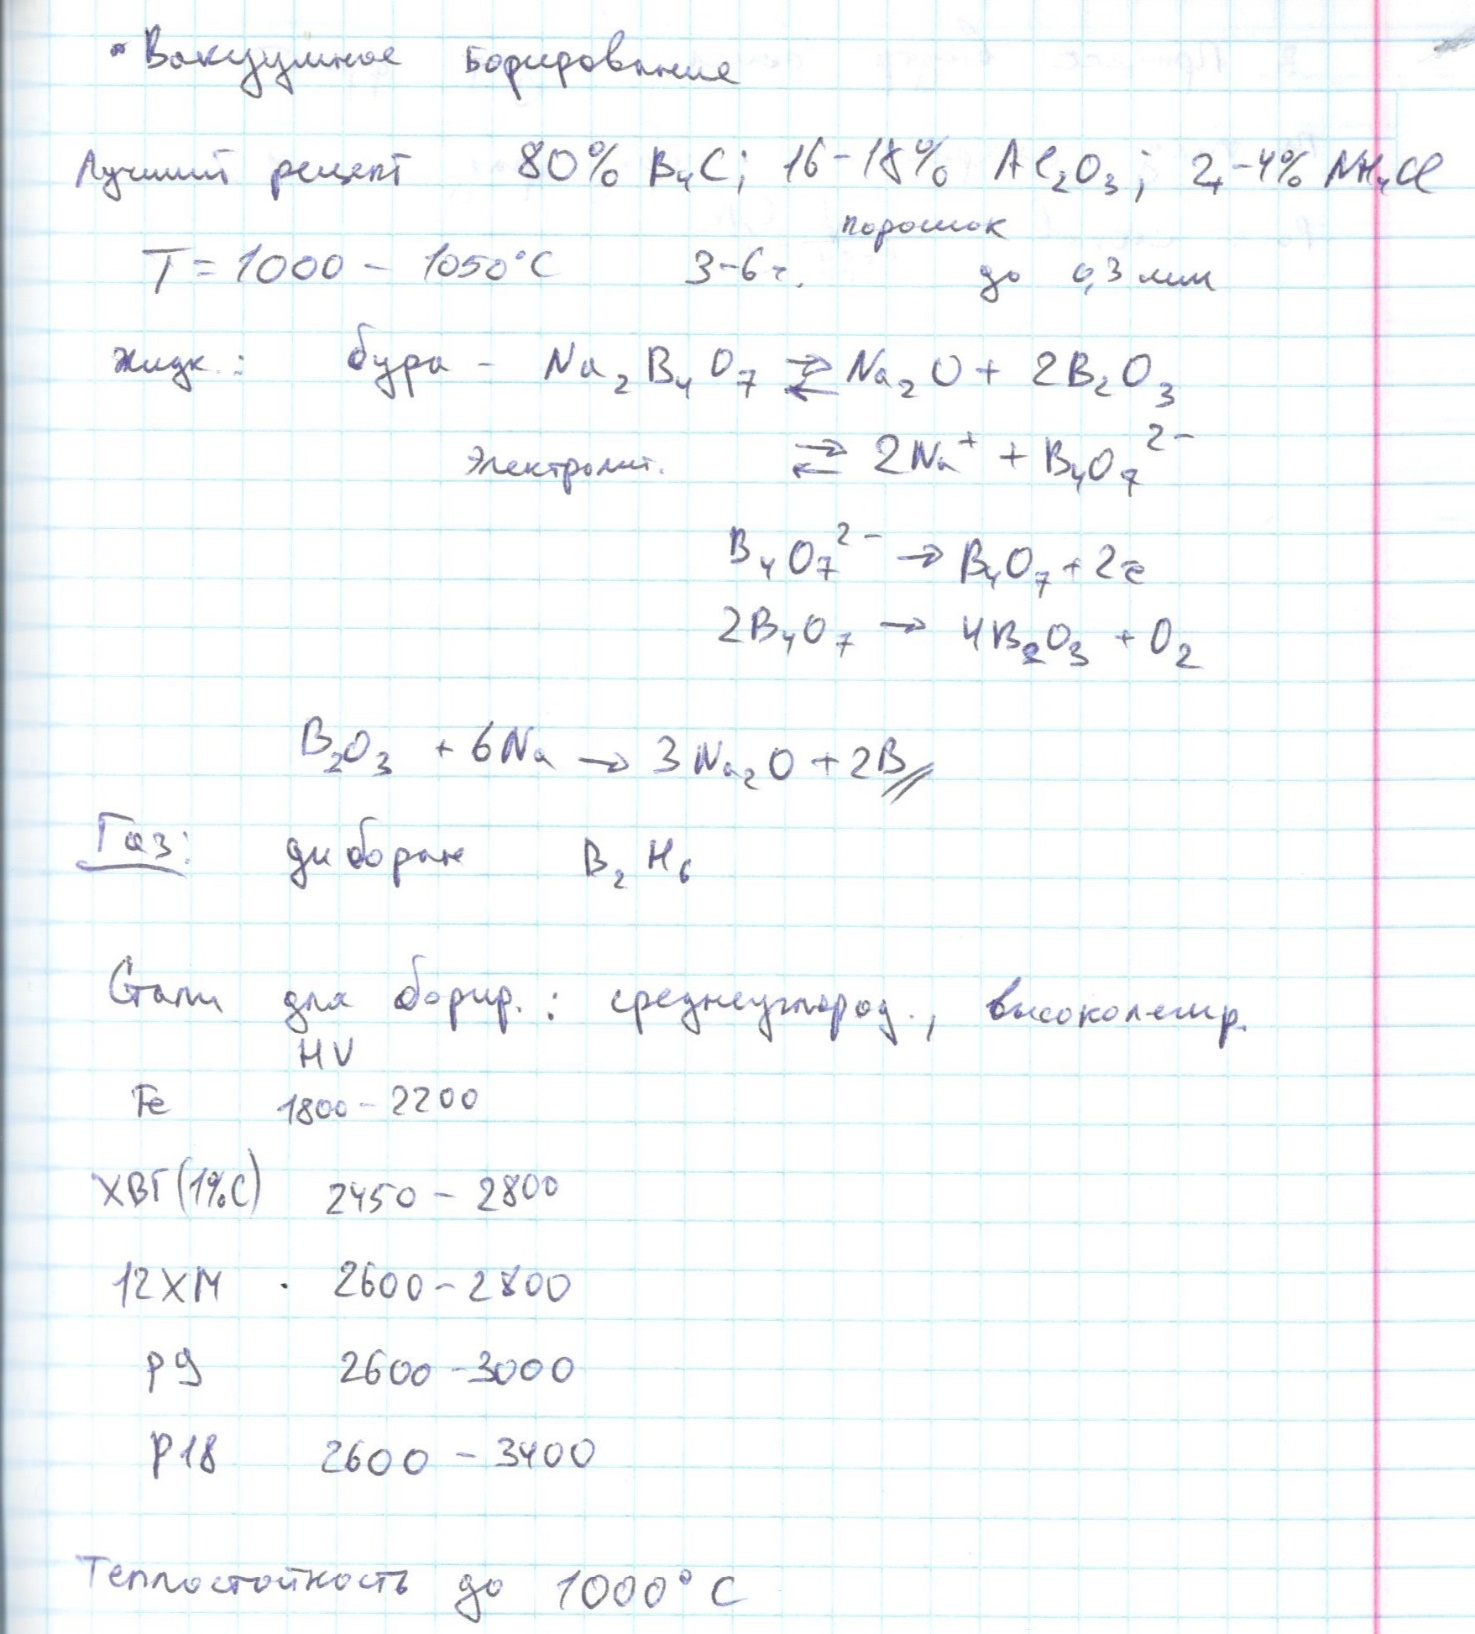 Вакуумное Борирование
Лучший рецепт 80% B₄C; 16-18% Al₂O₃; 2-4% NH₄Cl
порошок
T = 1000 - 1050°C 3-6 ч. до 0,3 мм
Жидк.: бура - Na₂B₄O₇ ⇄ Na₂O + 2B₂O₃
Электролит. ⇄ 2Na⁺ + B₄O₇²⁻
B₄O₇²⁻ → B₄O₇ + 2e
2B₄O₇ → 4B₂O₃ + O₂
B₂O₃ + 6Na → 3Na₂O + 2B
Газ: диборан B₂H₆
Стали для борир.: среднеуглерод., высоколегир.
HV
Fe 1800 - 2200
ХВГ (1%C) 2450 - 2800
12ХМ 2600 - 2800
Р9 2600 - 3000
Р18 2600 - 3400
Теплостойкость до 1000°C